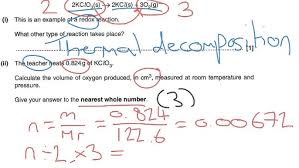 2 2KClO₃(s) → 2KCl(s) + 3O₂(g) 3
(i) This is an example of a redox reaction.
What other type of reaction takes place?
Thermal decomposition
[1]
(ii) The teacher heats 0.824 g of KClO₃.
Calculate the volume of oxygen produced, in cm³, measured at room temperature and
pressure.
Give your answer to the nearest whole number. (3)
n = m/Mr = 0.824/122.6 = 0.00672
n ÷ 2 × 3 =